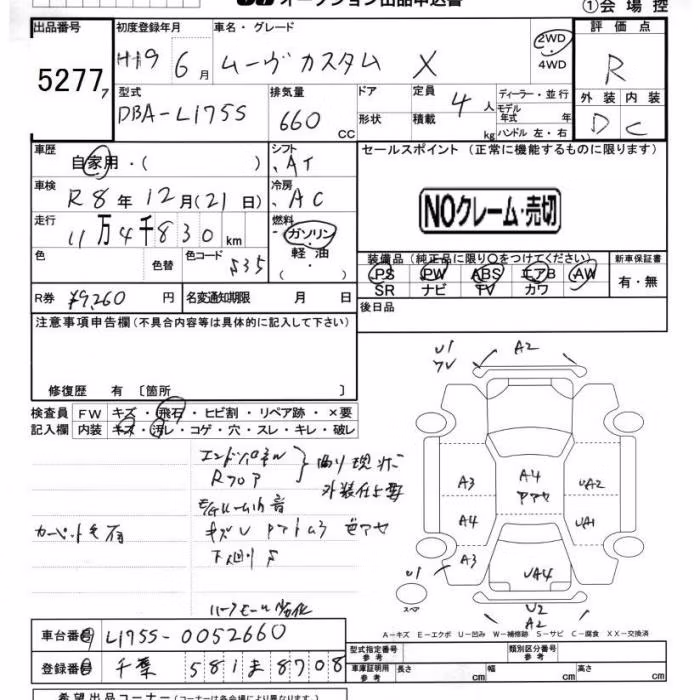 オークション出品申込書
①会場控
出品番号
5277
初度登録年月
H19 6月
車名・グレード
ムーヴカスタム X
2WD
4WD
評価点
R
型式
DBA-L175S
排気量
660 cc
ドア
形状
定員 4人
積載 kg
ディーラー・並行
モデル年式 年
ハンドル 左・右
外装 内装
D C
車歴
自家用・( )
シフト
AT
セールスポイント (正常に機能するものに限ります)
車検
R8年12月(21日)
冷房
AC
NOクレーム・売切
走行
11万4千830km
燃料
ガソリン
軽油
( )
色
色替
色コード S35
装備品(純正品に限り○をつけてください)
新車保証書
PS PW ABS エアB AW
有・無
SR ナビ TV カワ
R券 ¥9,260円
名変通知期限 月 日
後日品
注意事項申告欄(不具合内容等は具体的に記入して下さい)
修復歴 有 〔箇所 〕
検査員
記入欄
FW キズ・飛石・ヒビ割・リペア跡・×要
内装 キズ・汚レ・コゲ・穴・スレ・キレ・破レ
エンドパネル
Rフロア
曲り現状
外装仕上要
音
カーペット
下廻りS
U1
A2
A3
A4
A3
A4
UA2
UA1
U1
スペア
UA4
U2
A2
A-キズ E-エクボ U-凹み W-補修跡 S-サビ C-腐食 XX-交換済
車台番号 L175S-0052660
型式指定番号
類別区分番号
登録番号 千葉 581 ま 8708
車庫証明用参考
長さ cm
幅 cm
高さ cm
希望出品コーナー (コーナーは各会場により異なります)